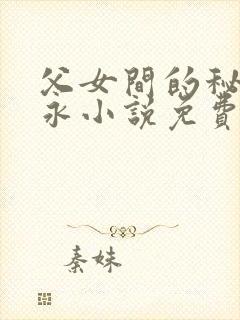 父女間的秘
永小說免費
秦妹